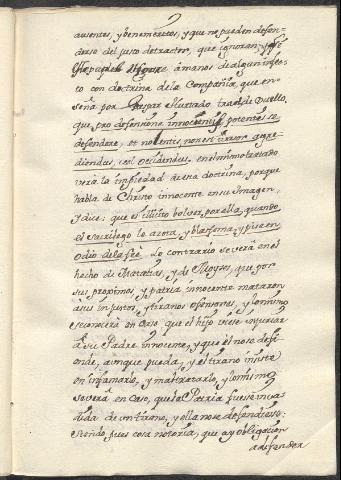 ausentes, y benemeritos, y que no pueden defen-
derse del justo detractor, que ignoran, y
papel llegare á manos de algun infec-
to con doctrina de la Compañia, que en-
seña por Gaspar Hurtado, tract. de Duello,
que pro defensione innocentis potentis se
defendere, et nolentis non est tirano agre-
diendus, vel occidendus. en el mismo tratado
verà la impiedad de esta doctrina, porque
habla de Christo innocente en su Imagen,
y dice: que es illicito bolver por ella, quando
el Sacrilego lo azota, y blasfema, y pisa en
odio de la feè. Lo contrario se verà en el
hecho de Matatias, y de Moyses, que por
sus proximos, y patria innocente mataron
à sus injustos, y tiranos ofensores, y lo mismo
se conocerà en caso, que el hijo viese injuriar
à su Padre innocente, y que èl no se defi-
ende, aunque pueda, y el tirano insiste
en infamarlo, y maltratarlo, y lo mismo
se verà en caso, que la Patria fuese inva-
dida de un tirano, y ella no se defendiese:
siendo pues cosa notoria, que ay obligacion
a defender